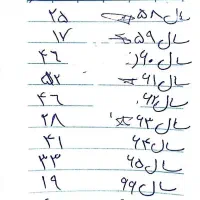 سال ۵۸ ۲۵
سال ۵۹ ۱۷
سال ۶۰ ۴۶
سال ۶۱ ۵۲
سال ۶۲ ۴۶
سال ۶۳ ۲۸
سال ۶۴ ۴۱
سال ۶۵ ۳۳
سال ۶۶ ۱۹